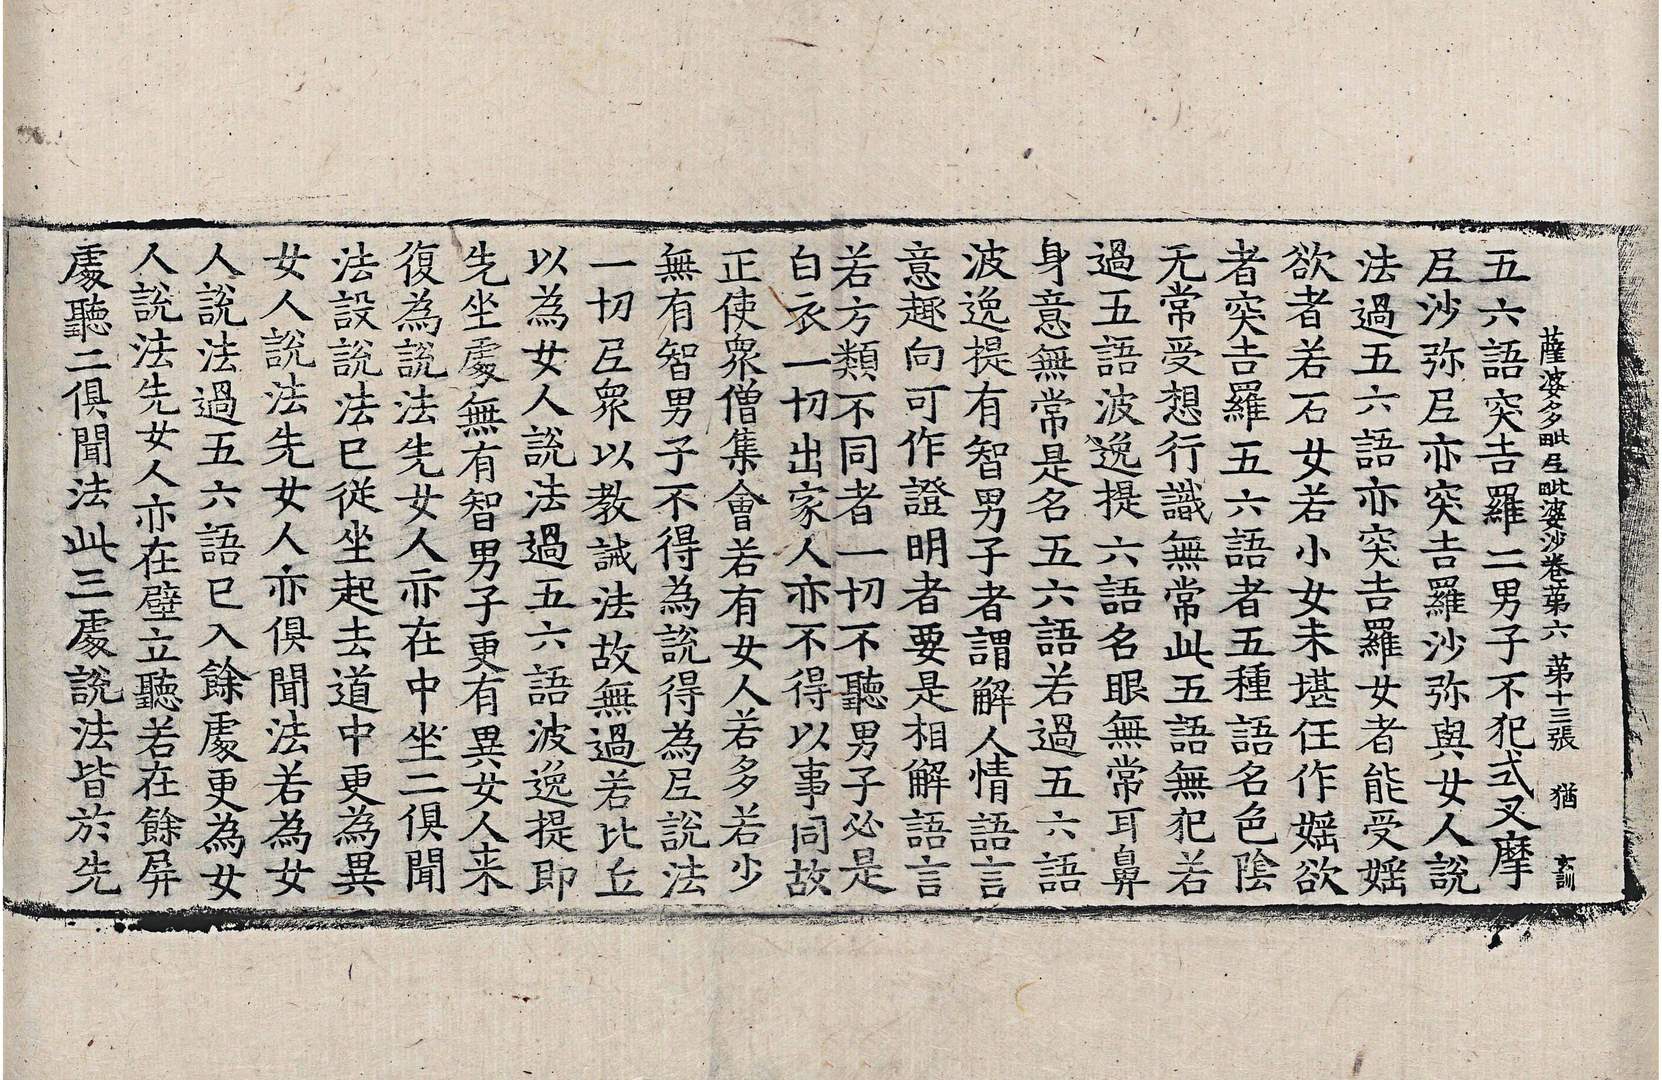 薩婆多毗尼毗婆沙卷第六 第十三張 猶 玄訓
五六語突吉羅二男子不犯式叉摩
尼沙弥尼亦突吉羅沙弥與女人說
法過五六語亦突吉羅女者能受婬
欲者若石女若小女未堪任作婬欲
者突吉羅五六語者五種語名色陰
无常受想行識無常此五語無犯若
過五語波逸提六語名眼無常耳鼻
身意無常是名五六語若過五六語
波逸提有智男子者謂解人情語言
意趣向可作證明者要是相解語言
若方類不同者一切不聽男子必是
白衣一切出家人亦不得以事同故
正使衆僧集會若有女人若多若少
無有智男子不得為說得為尼說法
一切尼衆以教誡法故無過若比丘
以為女人說法過五六語波逸提即
先坐處無有智男子更有異女人来
復為說法先女人亦在中坐二俱聞
法設說法已從坐起去道中更為異
女人說法先女人亦俱聞法若為女
人說法過五六語已入餘處更為女
人說法先女人亦在壁立聽若在餘屏
處聽二俱聞法此三處說法皆於先